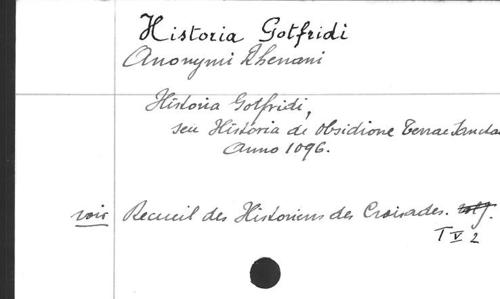 Historia Gotfridi
Anonymi Rhenani
Historia Gotfridi,
seu Historia de Obsidione Terrae Sanctae
Anno 1096.
voir Recueil des Historiens des Croisades.
T V 2